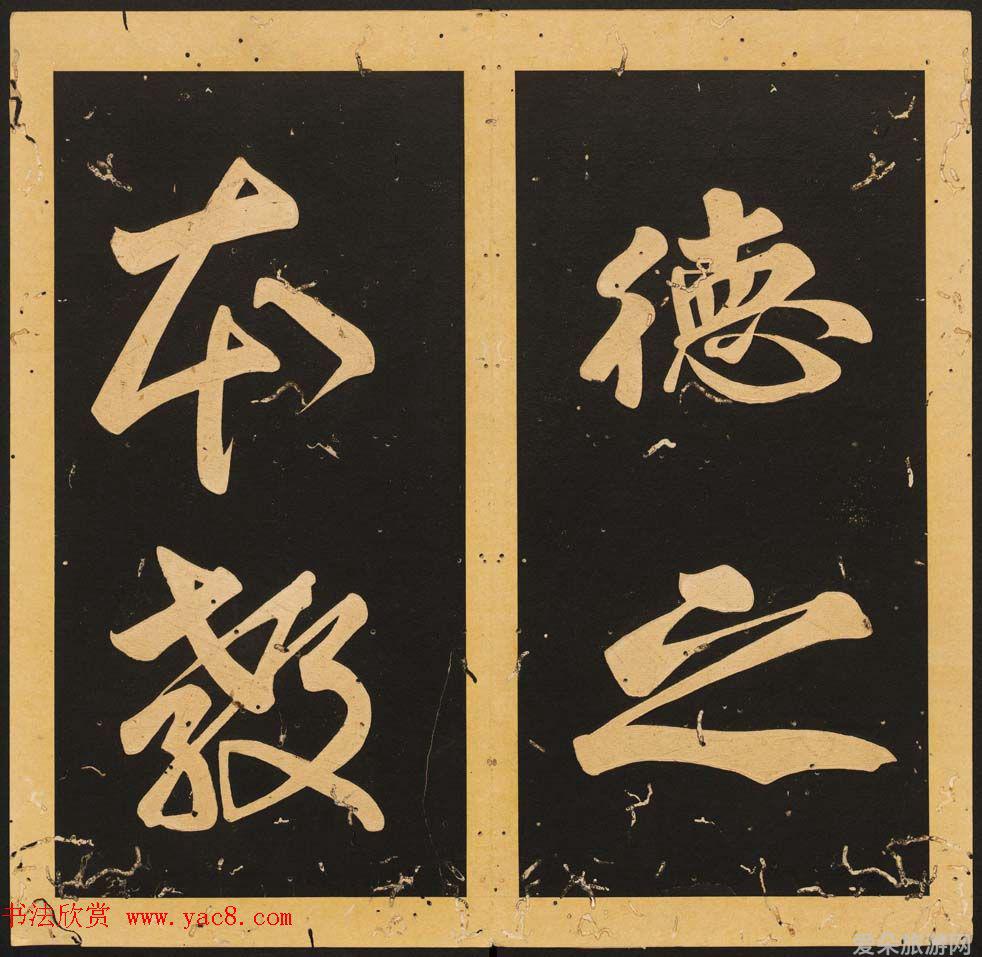 德之
本教
书法欣赏 www.yac8.com
爱朵旅游网